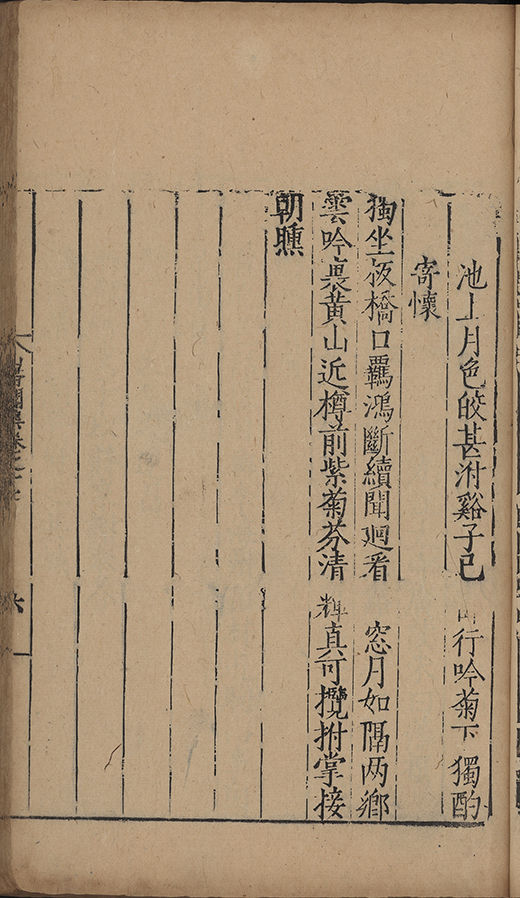 池上月色皎甚泭谿子已行吟菊下獨酌
寄懷
獨坐板橋口羈鴻斷續聞迴看窓月如隔两鄉
雲吟裏黄山近樽前紫菊芬清輝真可攬拊掌接
朝曛
六